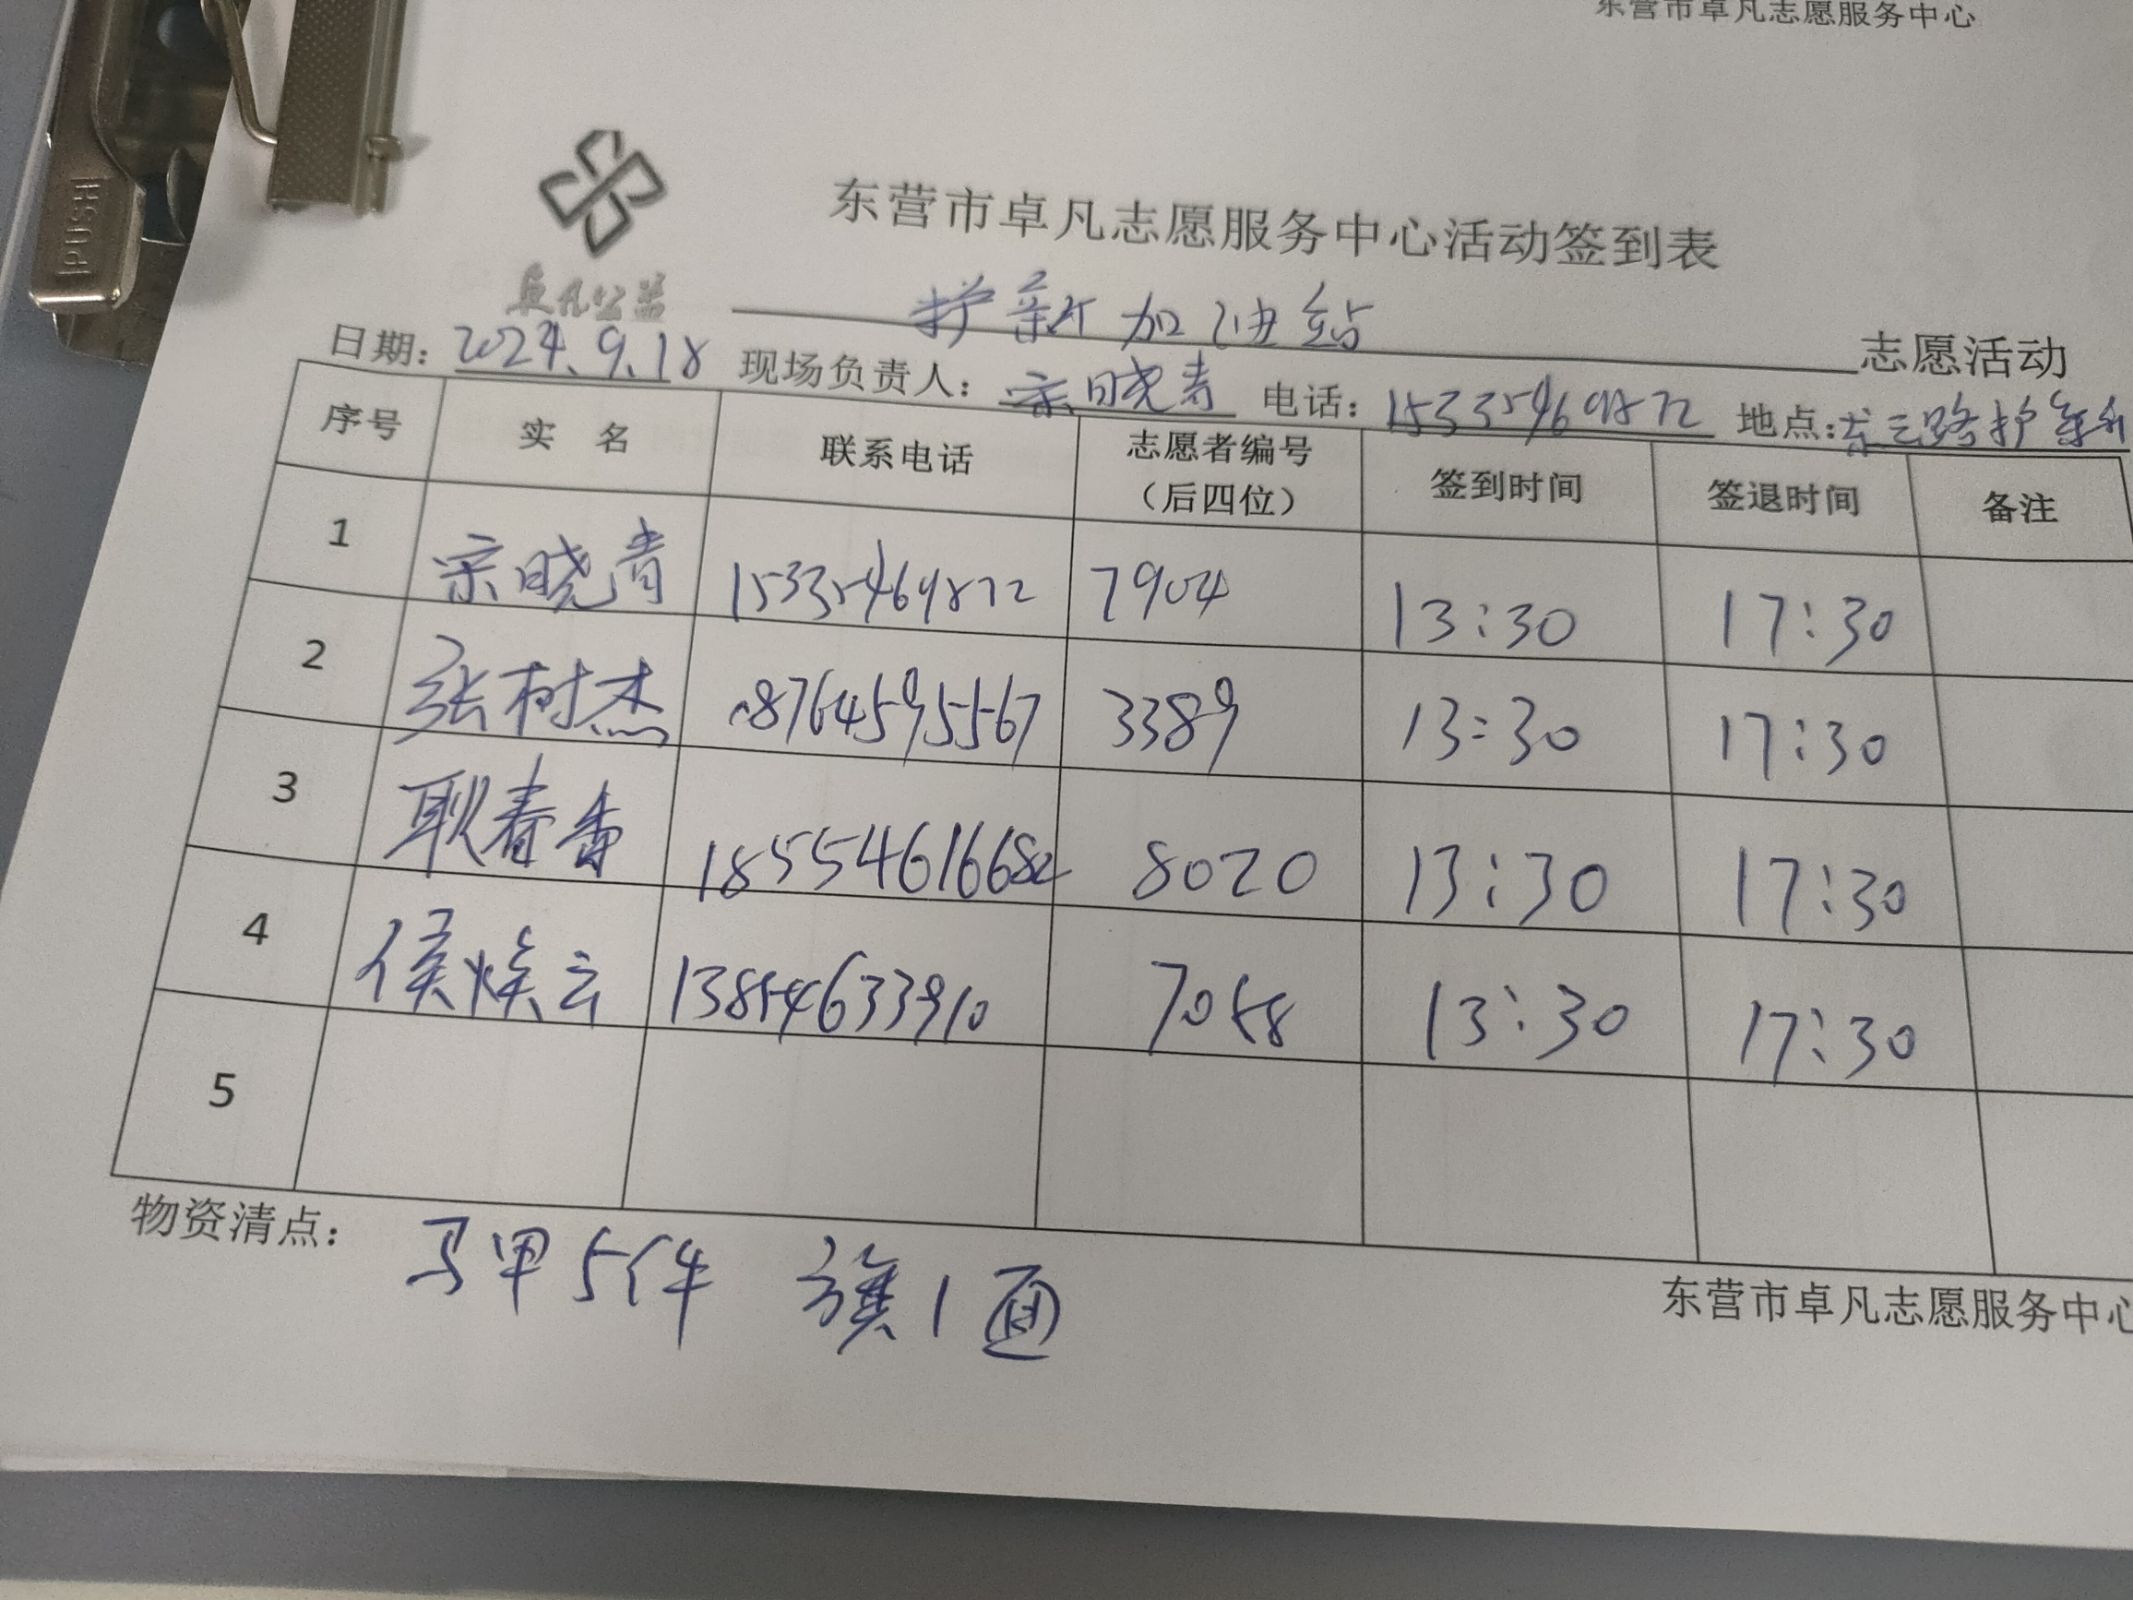 东营市卓凡志愿服务中心
PUSH
东营市卓凡志愿服务中心活动签到表
卓凡公益
护新加油站 志愿活动
日期: 2024.9.18 现场负责人: 宗晓青 电话: 15335469872 地点: 东三路护新
序号 实 名 联系电话 志愿者编号（后四位） 签到时间 签退时间 备注
1 宗晓青 15335469872 7904 13:30 17:30
2 张树杰 18764595567 3389 13:30 17:30
3 耿春香 18554616682 8020 13:30 17:30
4 侯焕云 13854633910 7058 13:30 17:30
5
物资清点: 马甲5件 旗1面
东营市卓凡志愿服务中心